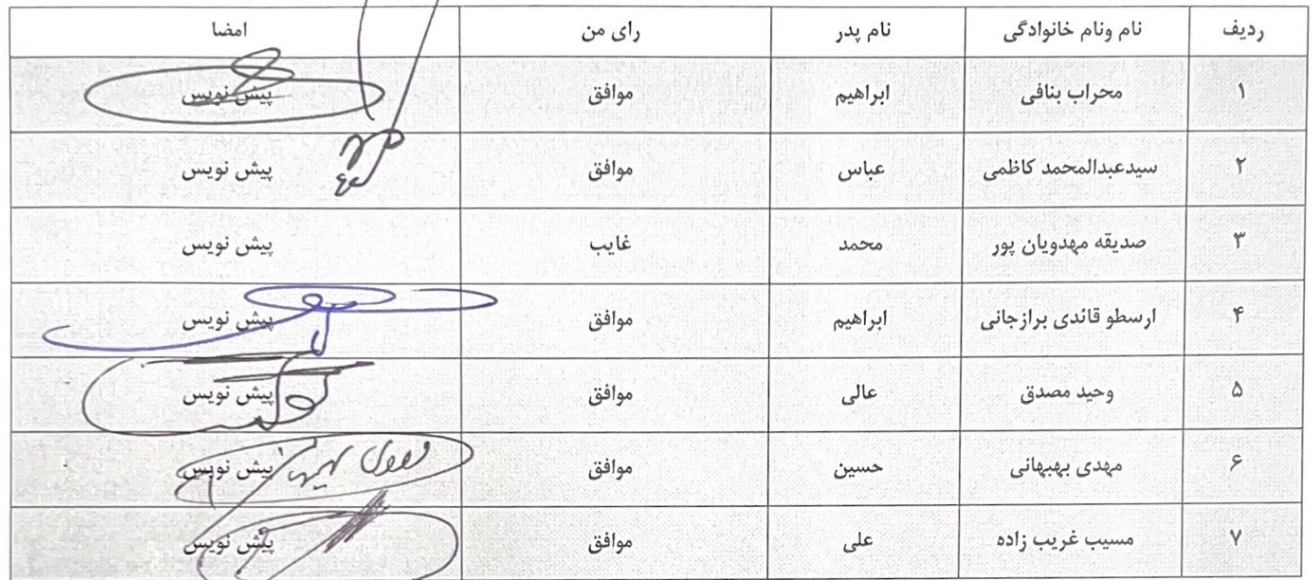 ردیف نام ونام خانوادگی نام پدر رای من امضا
۱ محراب بنافی ابراهیم موافق پیش نویس
۲ سیدعبدالمحمد کاظمی عباس موافق پیش نویس
۳ صدیقه مهدویان پور محمد غایب پیش نویس
۴ ارسطو قائدی برازجانی ابراهیم موافق پیش نویس
۵ وحید مصدق عالی موافق پیش نویس
۶ مهدی بهبهانی حسین موافق پیش نویس
۷ مسیب غریب زاده علی موافق پیش نویس